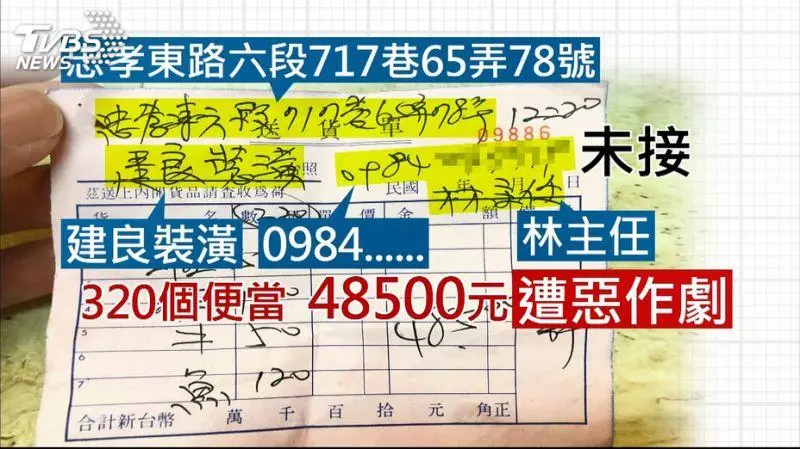 TVBS
NEWS
忠孝東路六段717巷65弄78號
忠孝東六段717巷65弄78號 12:20
送貨單
09886
建良裝潢
照
0984
未接
茲送上內開貨品請查收為荷
民國 年 月 日
林主任
名 數 單 價 金 額 備
建良裝潢
0984......
林主任
320個便當 48500元 遭惡作劇
5
50
7
魚 120
合計新台幣 萬 千 百 拾 元 角正